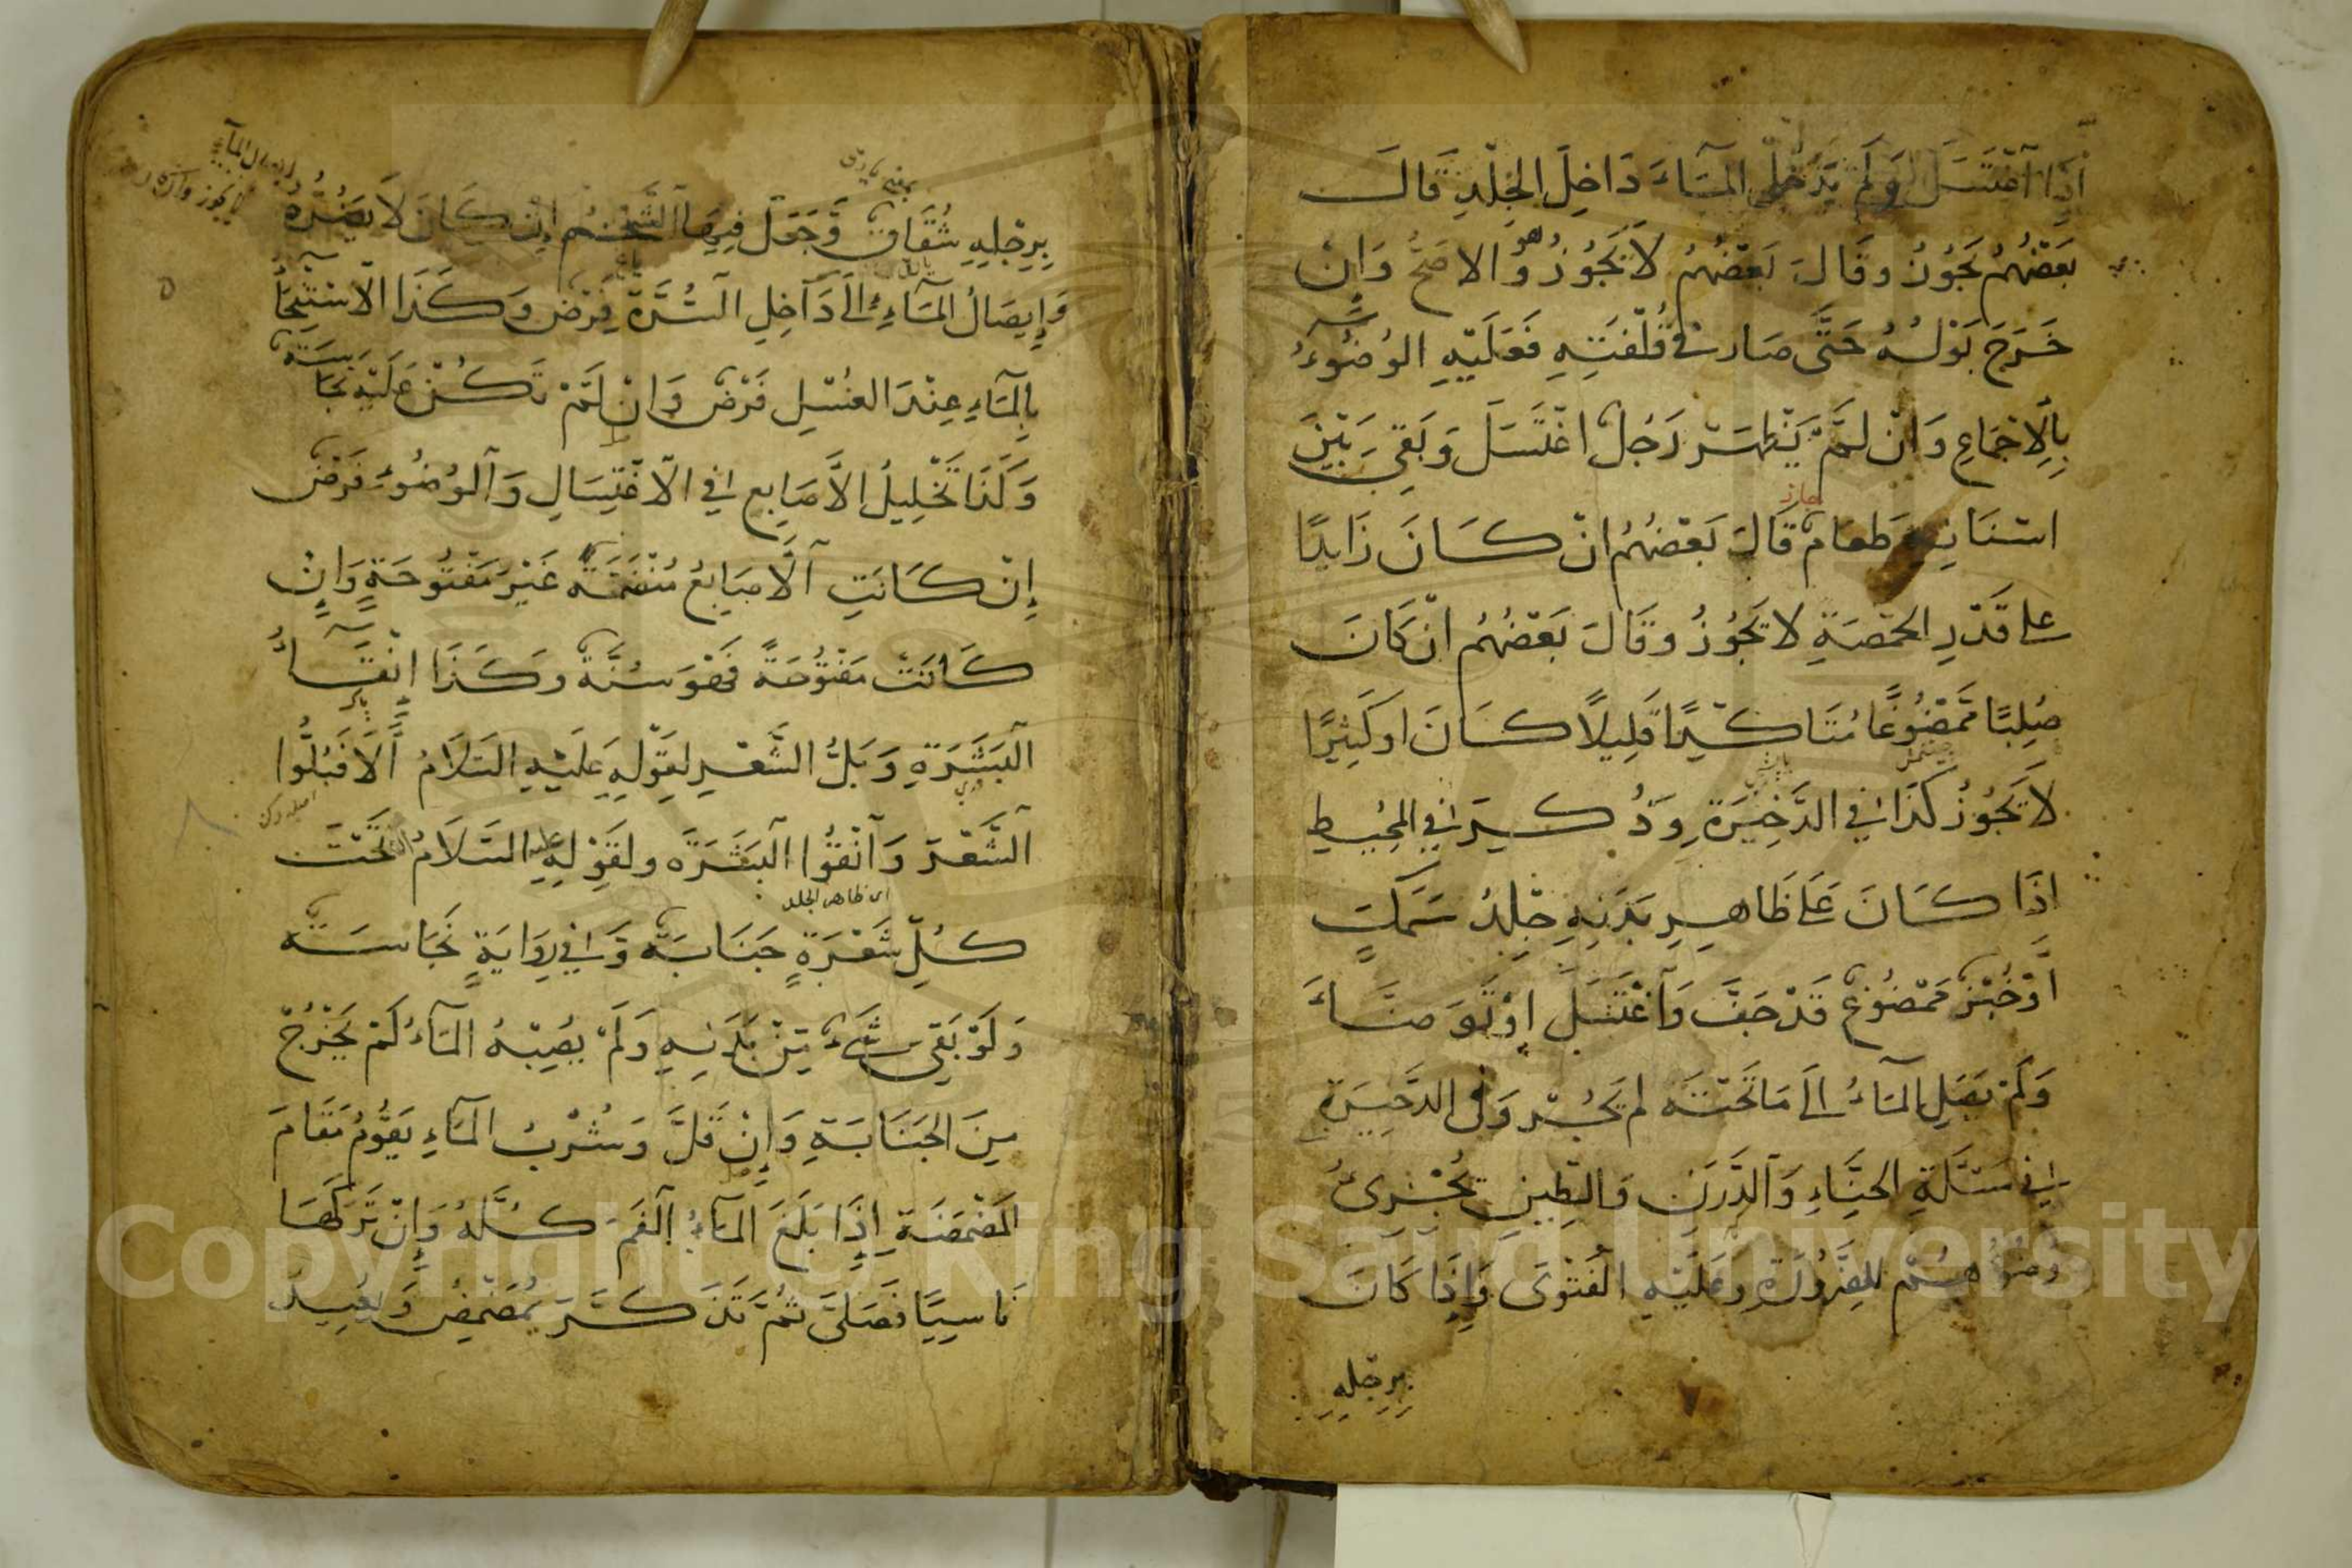 إِذَا اغْتَسَلَ وَلَمْ يَدْخُلِ الْمَاءَ دَاخِلَ الْجِلْدِ قَالَ
بَعْضُهُمْ يَجُوزُ وَقَالَ بَعْضُهُمْ لَا يَجُوزُ وَهُوَ الْاَصَحُّ وَاِنْ
خَرَجَ بَوْلُهُ حَتَّى صَارَ فِي قُلْفَتِهِ فَعَلَيْهِ الْوُضُوءُ
بِالْإِجْمَاعِ وَاِنْ لَمْ يَظْهَرْ رَجُلٌ اغْتَسَلَ وَبَقِيَ بَيْنَ
اسْنَانِهِ طَعَامٌ قَالَ بَعْضُهُمْ اِنْ كَانَ زَايِدًا
على قَدْرِ الحمّصَةِ لا يَجُوزُ وقَالَ بَعْضُهُمْ انْ كَانَ
صُلِبًا مَمْضُوغًا مُتَاكِّدًا قَلِيلًا كَانَ او كَثِيرًا
لَا يَجُوزُ كَذَا فِي الذَّخِيرَةِ وَذُكِرَ فِي الْمُحِيطِ
اِذَا كَانَ عَلَى ظَاهِرِ بَدَنِهِ جِلْدُ سَمَكٍ
اَوْ خُبْزٌ مَمْضُوغٌ قَدْ جَفَّ وَاغْتَسَلَ اَوْ تَوَضَّاءَ
وَلَمْ يَصِلِ الْمَاءُ اِلَى مَا تَحْتَهُ لم يَجُزْ وَفِي الذَّخِيرَةِ
فِي مَسْئَلَةِ الْحِنَّاءِ وَالدَّرَنِ وَالطِّينِ يُجْزِئُ
وُضُوؤُهُمْ لِلضَّرُورَةِ وَعَلَيْهِ الْفَتْوَى وَاِذَا كَانَ
بِرِجْلِهِ
بِرِجْلِيهِ شُقَاقٌ وَجَعَلَ فِيهَا الشَّحْمَ إِنْ كَانَ لَا يَضُرُّهُ
وَإِيصَالُ الْمَاءِ اِلَى دَاخِلِ السُّرَّةِ فَرْضٌ وَكَذَا الْاسْتِنْجَاءُ
بِالْمَاءِ عِنْدَ الْغُسْلِ فَرْضٌ وَاِنْ لَمْ تَكُنْ عَلَيْهِ نَجَاسَةٌ
وَكَذَا تَخْلِيلُ الْاَصَابِعِ فِي الْاغْتِسَالِ وَالْوُضُوءِ فَرْضٌ
إِنْ كَانَتِ الْاَصَابِعُ مُنْضَمَّةً غَيْرَ مَفْتُوحَةٍ وَاِنْ
كَانَتْ مَفْتُوحَةً فَهُوَ سُنَّةٌ وَكَذَا اِنْقَاءُ
الْبَشَرَةِ وَبَلُّ الشَّعْرِ لِقَوْلِهِ عَلَيْهِ السَّلَامُ أَلَا فَبُلُّوا
الشَّعْرَ وَانْقُوا الْبَشَرَةَ ولِقَوْلِهِ عليه السَّلَامُ تَحْتَ
اى ظاهر الجلد
كُلِّ شَعْرَةٍ جَنَابَةٌ وَفِي رِوَايَةٍ نَجَاسَةٌ
وَلَوْ بَقِيَ شَيْءٌ مِنْ بَدَنِهِ وَلَمْ يُصِبْهُ الْمَاءُ لَمْ يَخْرُجْ
مِنَ الْجَنَابَةِ وَاِنْ قَلَّ وَشُرْبُ الْمَاءِ يَقُومُ مَقَامَ
الْمَضْمَضَةِ اِذَا بَلَغَ الْمَاءُ الْفَمَ كُلَّهُ وَاِنْ تَرَكَهَا
نَاسِيًا فَصَلَّى ثُمَّ تَذَكَّرَ يُمَضْمِضُ وَيُعِيدُ
Copyright © King Saud University